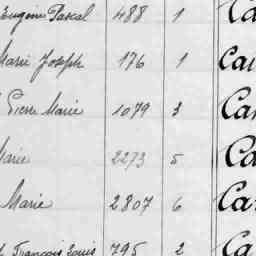 Eugène Pascal 488 1 Ca
Marie Joseph 176 1 Cau
Pierre Marie 1079 3 Ca
Marie 2273 5 Ca
Marie 2807 6 Ca
François Louis 795 2 Ca